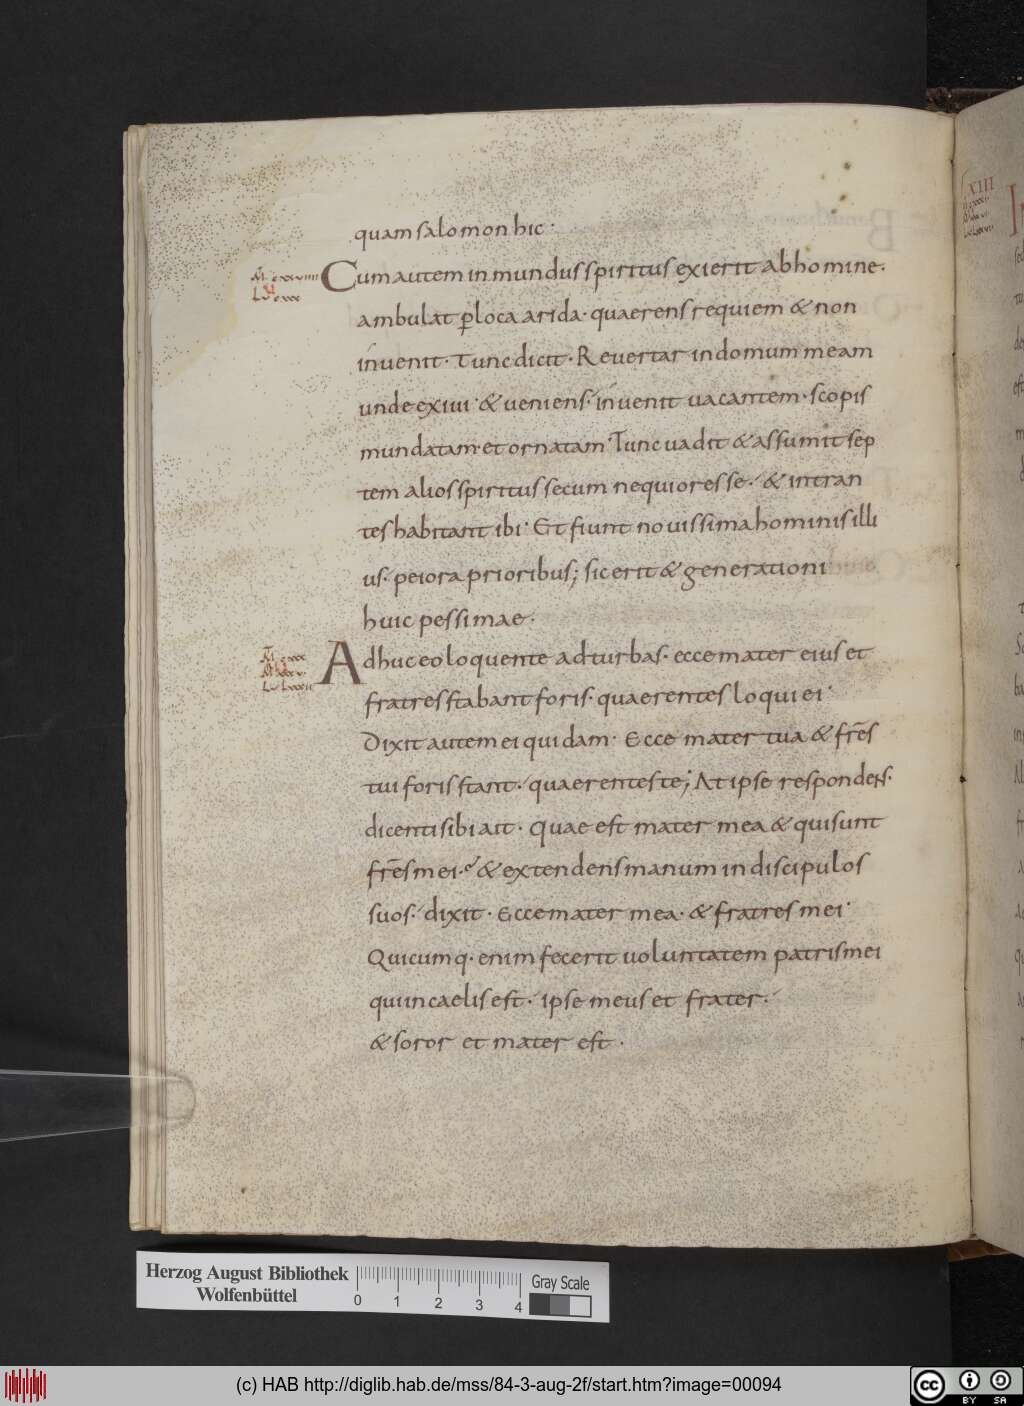 quam salomon hic·
Cum autem inmundus spiritus exierit ab homine·
ambulat p̲ loca arida· quaerens requiem & non
inuenit· Tunc dicit· Reuertar in domum meam
unde exiui· & ueniens· inuenit uacantem· scopis
mundatam· et ornatam· Tunc uadit & assumit sep
tem alios spiritus secum nequiores se· & intran
tes habitant ibi· Et fiunt nouissima hominis illi
us· peiora prioribus; sic erit & generationi
huic pessimae·
Adhuc eo loquente ad turbas· ecce mater eius et
fratres stabant foris· quaerentes loqui ei·
Dixit autem ei quidam· Ecce mater tua & fr̄es
tui foris stant· quaerentes te; At ipse respondens·
dicenti sibi ait· Quae est mater mea & qui sunt
fr̄es mei· & extendens manum in discipulos
suos· dixit· Ecce mater mea· & fratres mei·
Quicumq· enim fecerit uoluntatem patris mei
qui in caelis est· ipse meus et frater·
& soror et mater est·
XIII
Herzog August Bibliothek
Wolfenbüttel
0 1 2 3 4
Gray Scale
(c) HAB http://diglib.hab.de/mss/84-3-aug-2f/start.htm?image=00094
cc BY SA